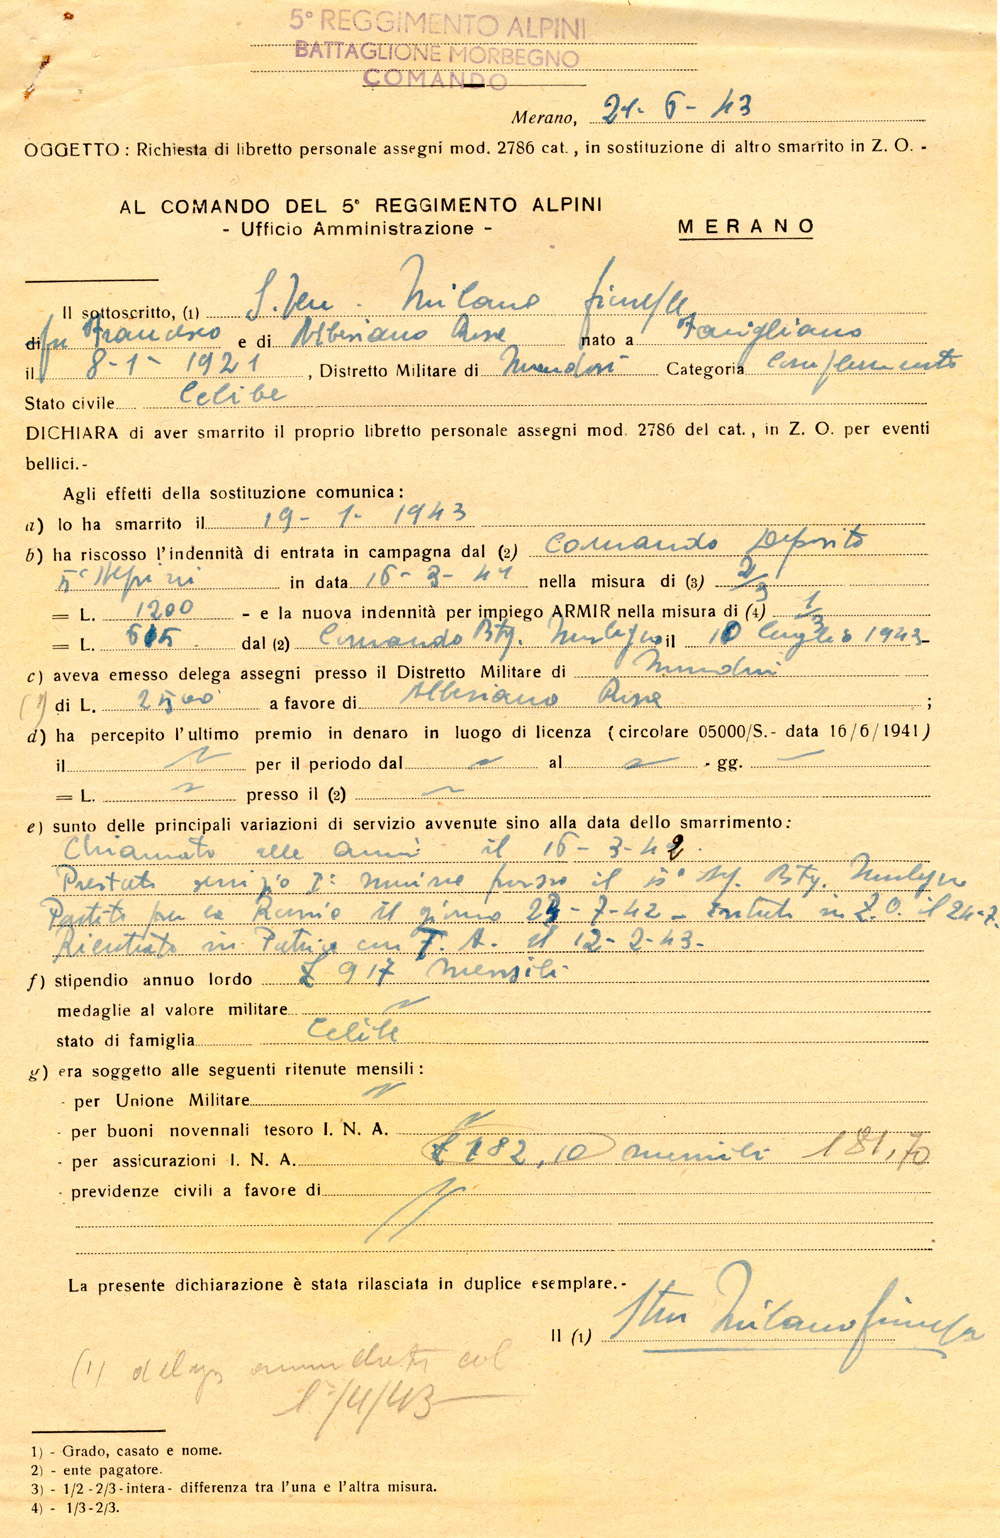 5º REGGIMENTO ALPINI
BATTAGLIONE MORBEGNO
COMANDO
Merano, 21-6-43
OGGETTO: Richiesta di libretto personale assegni mod. 2786 cat., in sostituzione di altro smarrito in Z. O. -
AL COMANDO DEL 5º REGGIMENTO ALPINI
- Ufficio Amministrazione - MERANO
Il sottoscritto, (1) S.Ten. Milano
di fu Francesco e di Albesiano Rosa nato a Farigliano
il 8-1-1921, Distretto Militare di Mondovì Categoria Complemento
Stato civile Celibe
DICHIARA di aver smarrito il proprio libretto personale assegni mod. 2786 del cat., in Z. O. per eventi
bellici.-
Agli effetti della sostituzione comunica:
a) lo ha smarrito il 19-1-1943
b) ha riscosso l'indennità di entrata in campagna dal (2) Comando Deposito
5º Alpini in data 16-3-42 nella misura di (3) 2/3
= L. 1200 - e la nuova indennità per impiego ARMIR nella misura di (4) 1/3
= L. 615 dal (2) Comando Btg. Morbegno il 10 luglio 1943-
c) aveva emesso delega assegni presso il Distretto Militare di Mondovì
(1) di L. 2500 a favore di Albesiano Rosa ;
d) ha percepito l'ultimo premio in denaro in luogo di licenza (circolare 05000/S.- data 16/6/1941)
il per il periodo dal al - gg.
= L. presso il (2)
e) sunto delle principali variazioni di servizio avvenute sino alla data dello smarrimento:
Chiamato alle armi il 16-3-42.
Prestato servizio 1ª nomina presso il 5º Alp. Btg. Morbegno
Partito per la Russia il giorno 23-7-42 - entrato in Z.O. il 24-7
Rientrato in Patria con T. A. il 12-2-43-
f) stipendio annuo lordo £ 917 mensili
medaglie al valore militare
stato di famiglia Celibe
g) era soggetto alle seguenti ritenute mensili:
- per Unione Militare
- per buoni novennali tesoro I. N. A.
- per assicurazioni I. N. A. £ 182,10 mensili 181,70
- previdenze civili a favore di
La presente dichiarazione è stata rilasciata in duplice esemplare.-
Il (1) Sten Milano
(1) delega annullata col
1º/4/43
1) - Grado, casato e nome.
2) - ente pagatore.
3) - 1/2 - 2/3 - intera - differenza tra l'una e l'altra misura.
4) - 1/3 - 2/3.